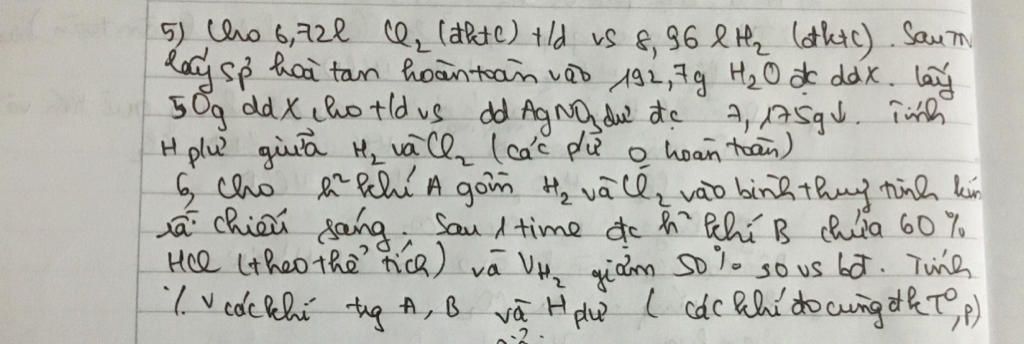 5) Cho 6,72l Cl₂ (đktc) t/d vs 8,96 l H₂ (đktc). Sau TN
lấy sp hoà tan hoàn toàn vào 192,7g H₂O đc ddX. Lấy
50g ddX cho t/d vs dd AgNO₃ dư đc 7,175g↓. Tính
H pư giữa H₂ và Cl₂ (các pư o hoàn toàn)
6, Cho h² khí A gồm H₂ và Cl₂ vào bình thuỷ tinh kín
và chiếu sáng. Sau 1 time đc h² khí B chứa 60%
HCl (theo thể tích) và VH₂ giảm 50% so vs bđ. Tính
% V các khí tg A, B và H pư ( các khí đo cùng đk T°, p)